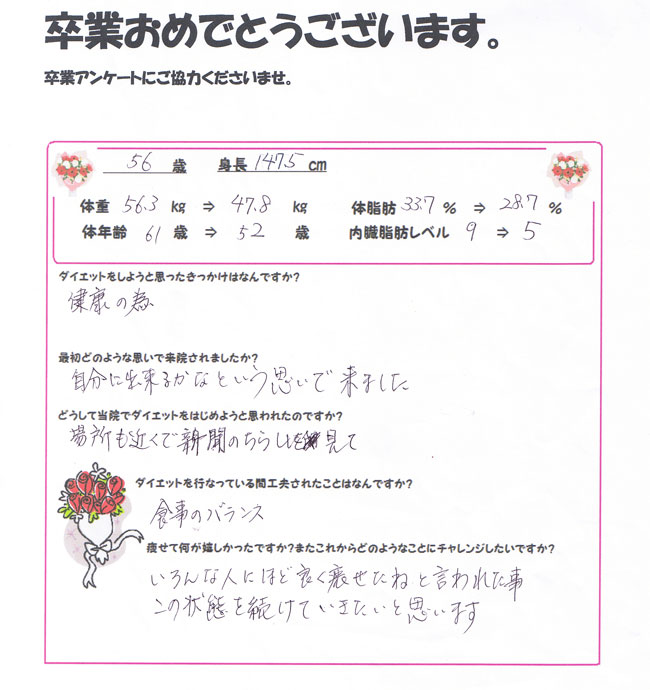 卒業おめでとうございます。
卒業アンケートにご協力くださいませ。
56 歳 身長 147.5 cm
体重 56.3 kg ⇒ 47.8 kg 体脂肪 33.7 % ⇒ 28.7 %
体年齢 61 歳 ⇒ 52 歳 内臓脂肪レベル 9 ⇒ 5
ダイエットをしようと思ったきっかけはなんですか?
健康の為
最初どのような思いで来院されましたか?
自分に出来るかなという思いで来ました
どうして当院でダイエットをはじめようと思われたのですか?
場所も近くで新聞のちらしを見て
ダイエットを行なっている間工夫されたことはなんですか?
食事のバランス
痩せて何が嬉しかったですか?またこれからどのようなことにチャレンジしたいですか?
いろんな人にほど良く痩せたねと言われた事
この状態を続けていきたいと思います